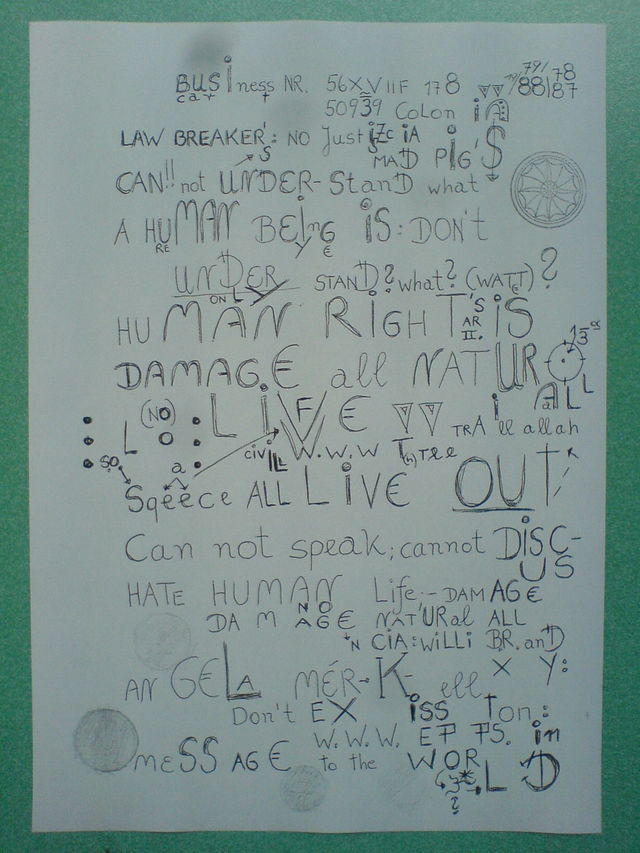 BUSiness NR. 56XVIIF 178 79/ 78
cat 88/87
50939 Colon in
LAW BREAKER': NO Just
S MAD PiG'S
CAN!! not UNDER-StanD what
A HUMAN BEing iS: DON't
RE y €
UNDER STAND? what? (WATT)?
ON LY
HUMAN RiGHT'S iS
AR II.
DAMAG€ all NATUR
ALL
(NO) LiVE
L O TRA ell allah
civ iLL W.W.W T(h)ree
SO a
Sqeece ALL LiV€ OUT
Can not speak; cannot DiSC-
US
HATE HUMAN Life:-DAMAG€
NO
DAMAG€ NAT'URal ALL
'N CiA:WiLLi BR. anD
ANGELA MÉR-K- ell X Y:
Don't EX iSS ton:
W.W.W. in
m€SSAG€ to the WORLD